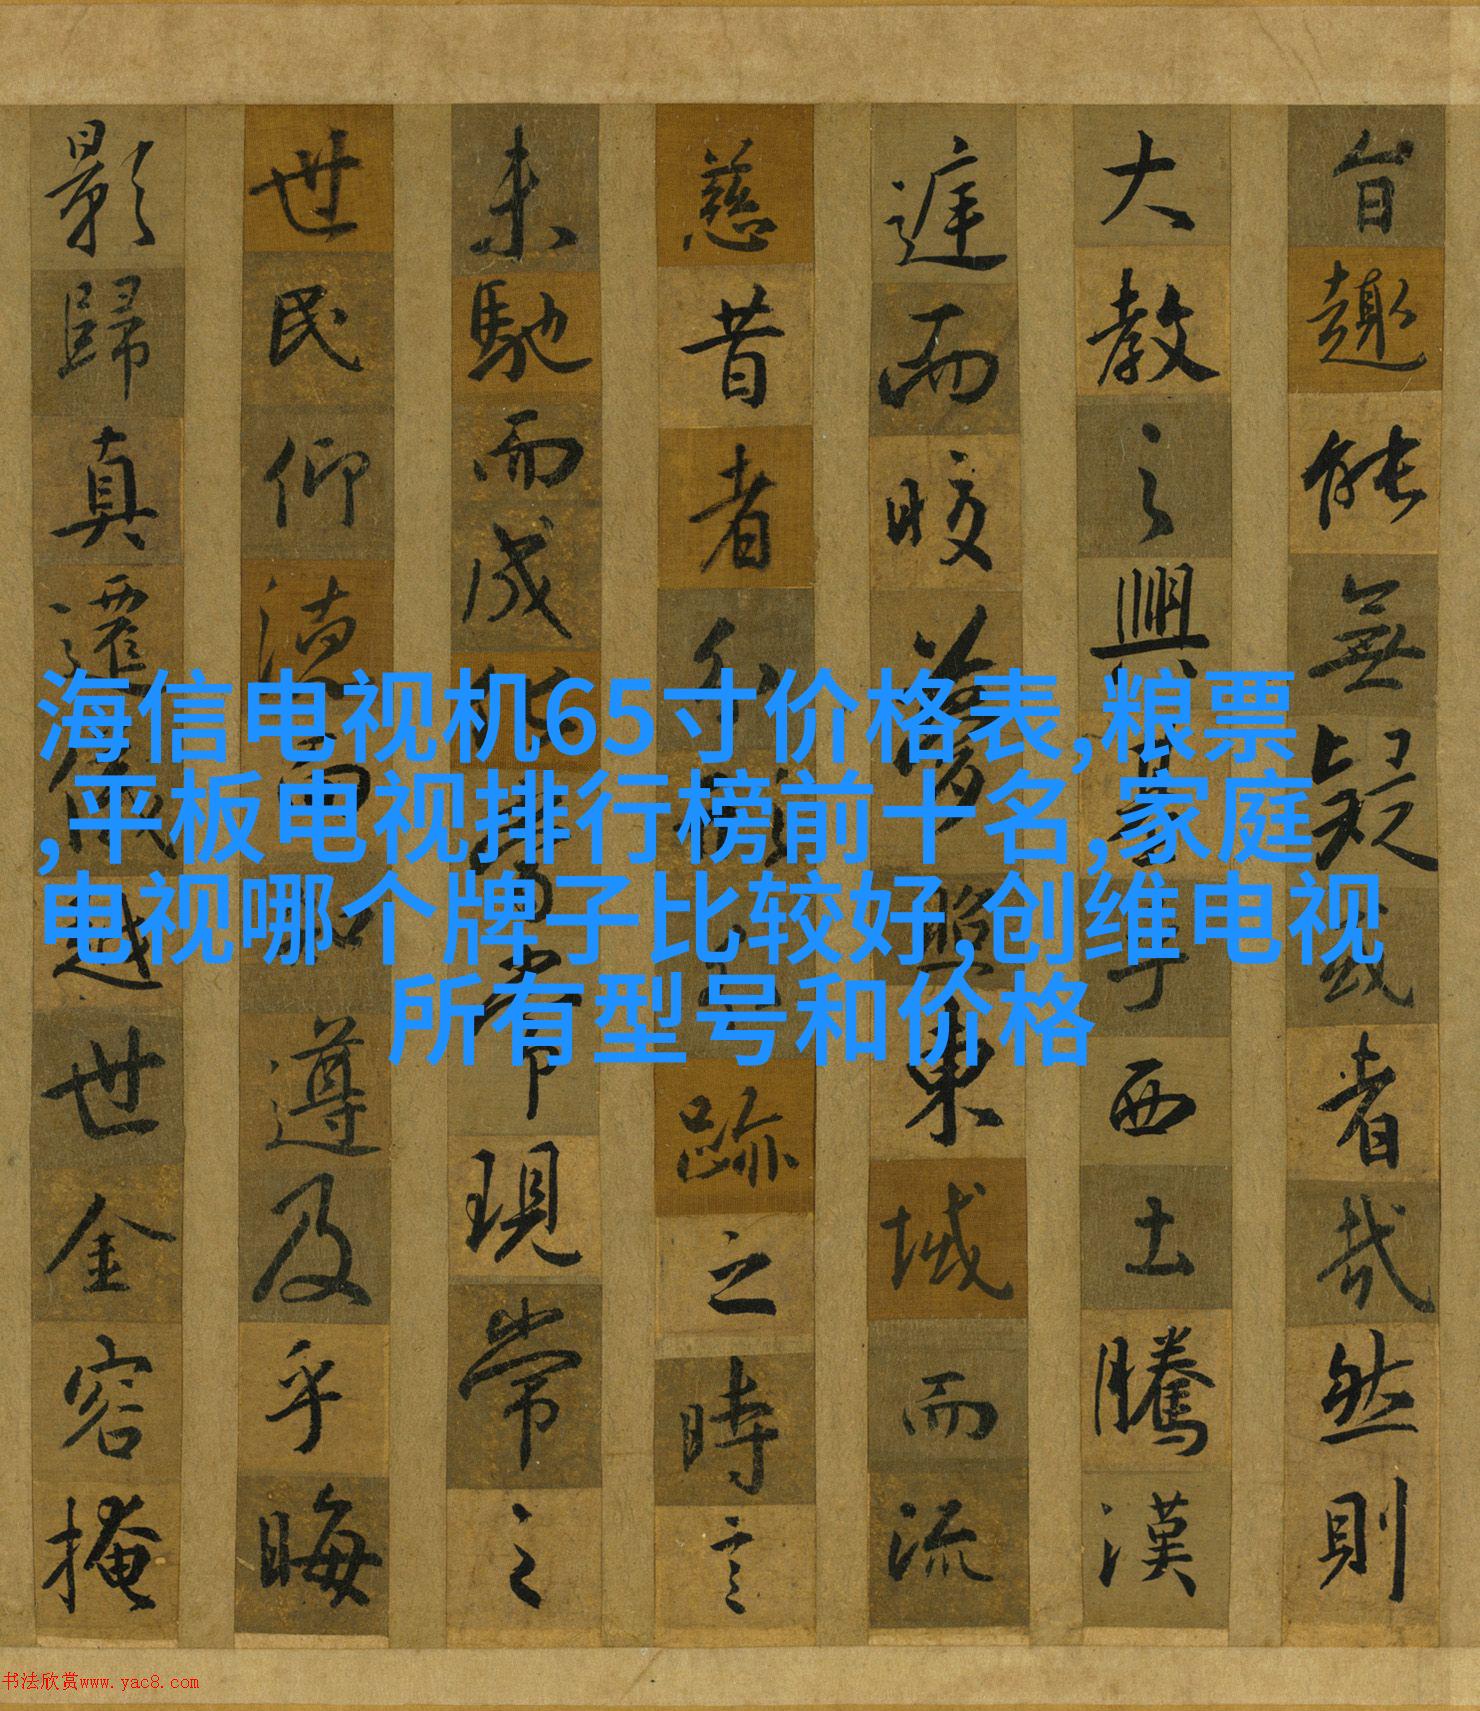 旨趣能無疑或者哉然則
大教之興基乎西土騰漢
庭而皎夢照東域而流
慈昔者分形分跡之時言
未馳而成化當常現常之
世民仰德而知遵及乎晦
影歸真遷儀越世金容掩
海信电视机65寸价格表,粮票
,平板电视排行榜前十名,家庭
电视哪个牌子比较好,创维电视
所有型号和价格
书法欣赏www.yac8.com